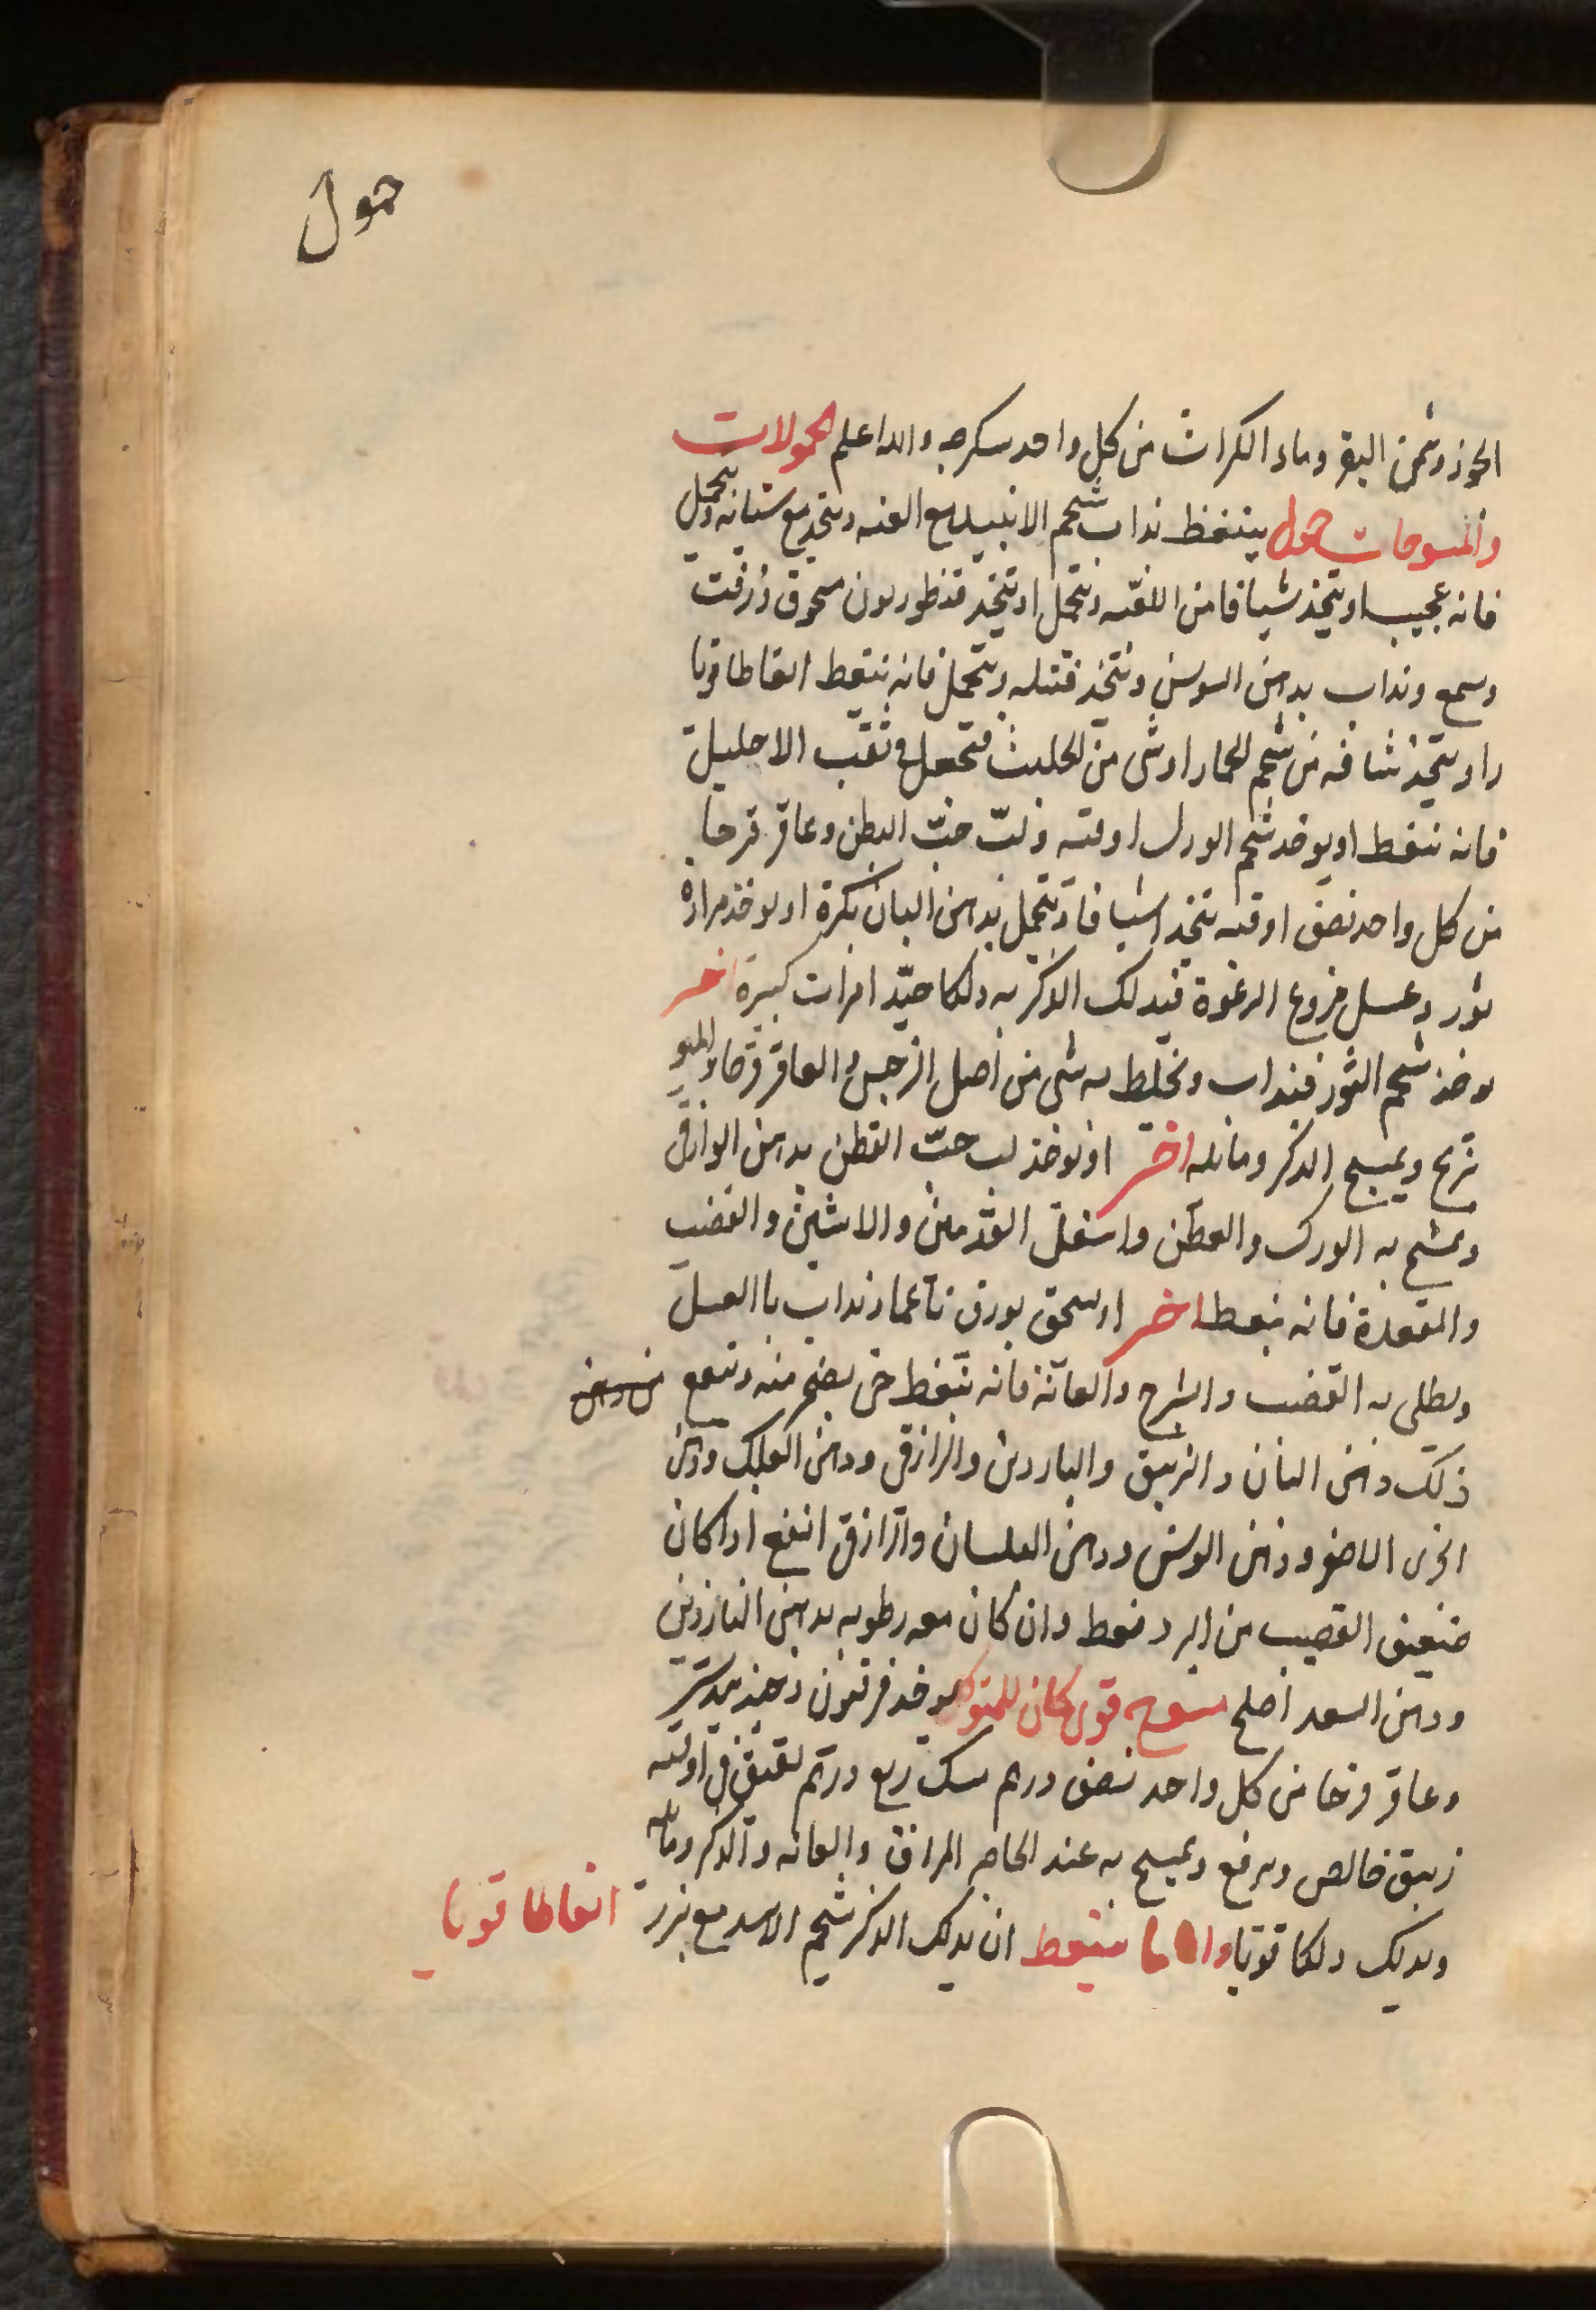 حمول
الجوز وسمن البقر وماء الكراث من كل واحد سكرجه والله اعلم الحمولات
والمسوحات حمول ينغظ يذاب شحم مع العنه ويتخذ مع ويحمل
فانه عجيب او يتخذ شيافا من اللعبه ويتحمل او يتخذ قنطوريون مسحوق وزفت
وسمع ويذاب بدهن السوسن ويتخذ فتيله ويتحمل فانه ينعظ انعاظا قويا
او يتخذ شافه من شحم الحمار او شى من الحلتيت فتجعل فى ثقب الاحليل
فانه ينغظ او يوخذ شحم الورل اوقيه ولبّ حبّ البطن وعاقر قرحا
من كل واحد نصف اوقيه يتخذ اشيافا ويتحمل بدهن البان بكرة او يوخذ مرارة
ثور وعسل منزوع الرغوة فيدلك الذكر به دلكا جيّد امرات كبيرة اخر
يوخذ شحم الثور فيذاب ويخلط به شى من اصل النرجس والعاقر قرحا
ويمسح الذكر وما يليه اخر او يوخذ لب حبّ القطن بدهن الرازقى
ويمسح به الورك والعطن واسفل القدمين والانثيين والقضيب
والمقعدة فانه ينعظ اخر او يسحق بورق ناعما ويذاب باالعسل
ويطلى به القضيب والشرج والعانة فانه ينغظ حتى يضجر منه وينفع من دهن
ذلك دهن البان والزيبق والناردين والرازقى ودهن العلك ودهن
الاصفر ودهن السوسن ودهن البلسان والرازقى انفع اذا كان
ضعيف القضيب من البرد فقط وان كان معه رطوبه بدهن الناردين
ودهن السعد اصلح مسوح قوى كان للمتوكل يوخذ فرفيون وجندبيدستر
وعاقر قرحا من كل واحد نصف درهم مسك ربع درهم يفتق فى اوقيه
زيبق خالص ويرفع ويمسح به عند الحاجه المراق والعانه والذكر وما يليه
ويدلك دلكا قويا ينعظ ان يدلك الذكر شحم الاسد مع بزر انعاظا قويا